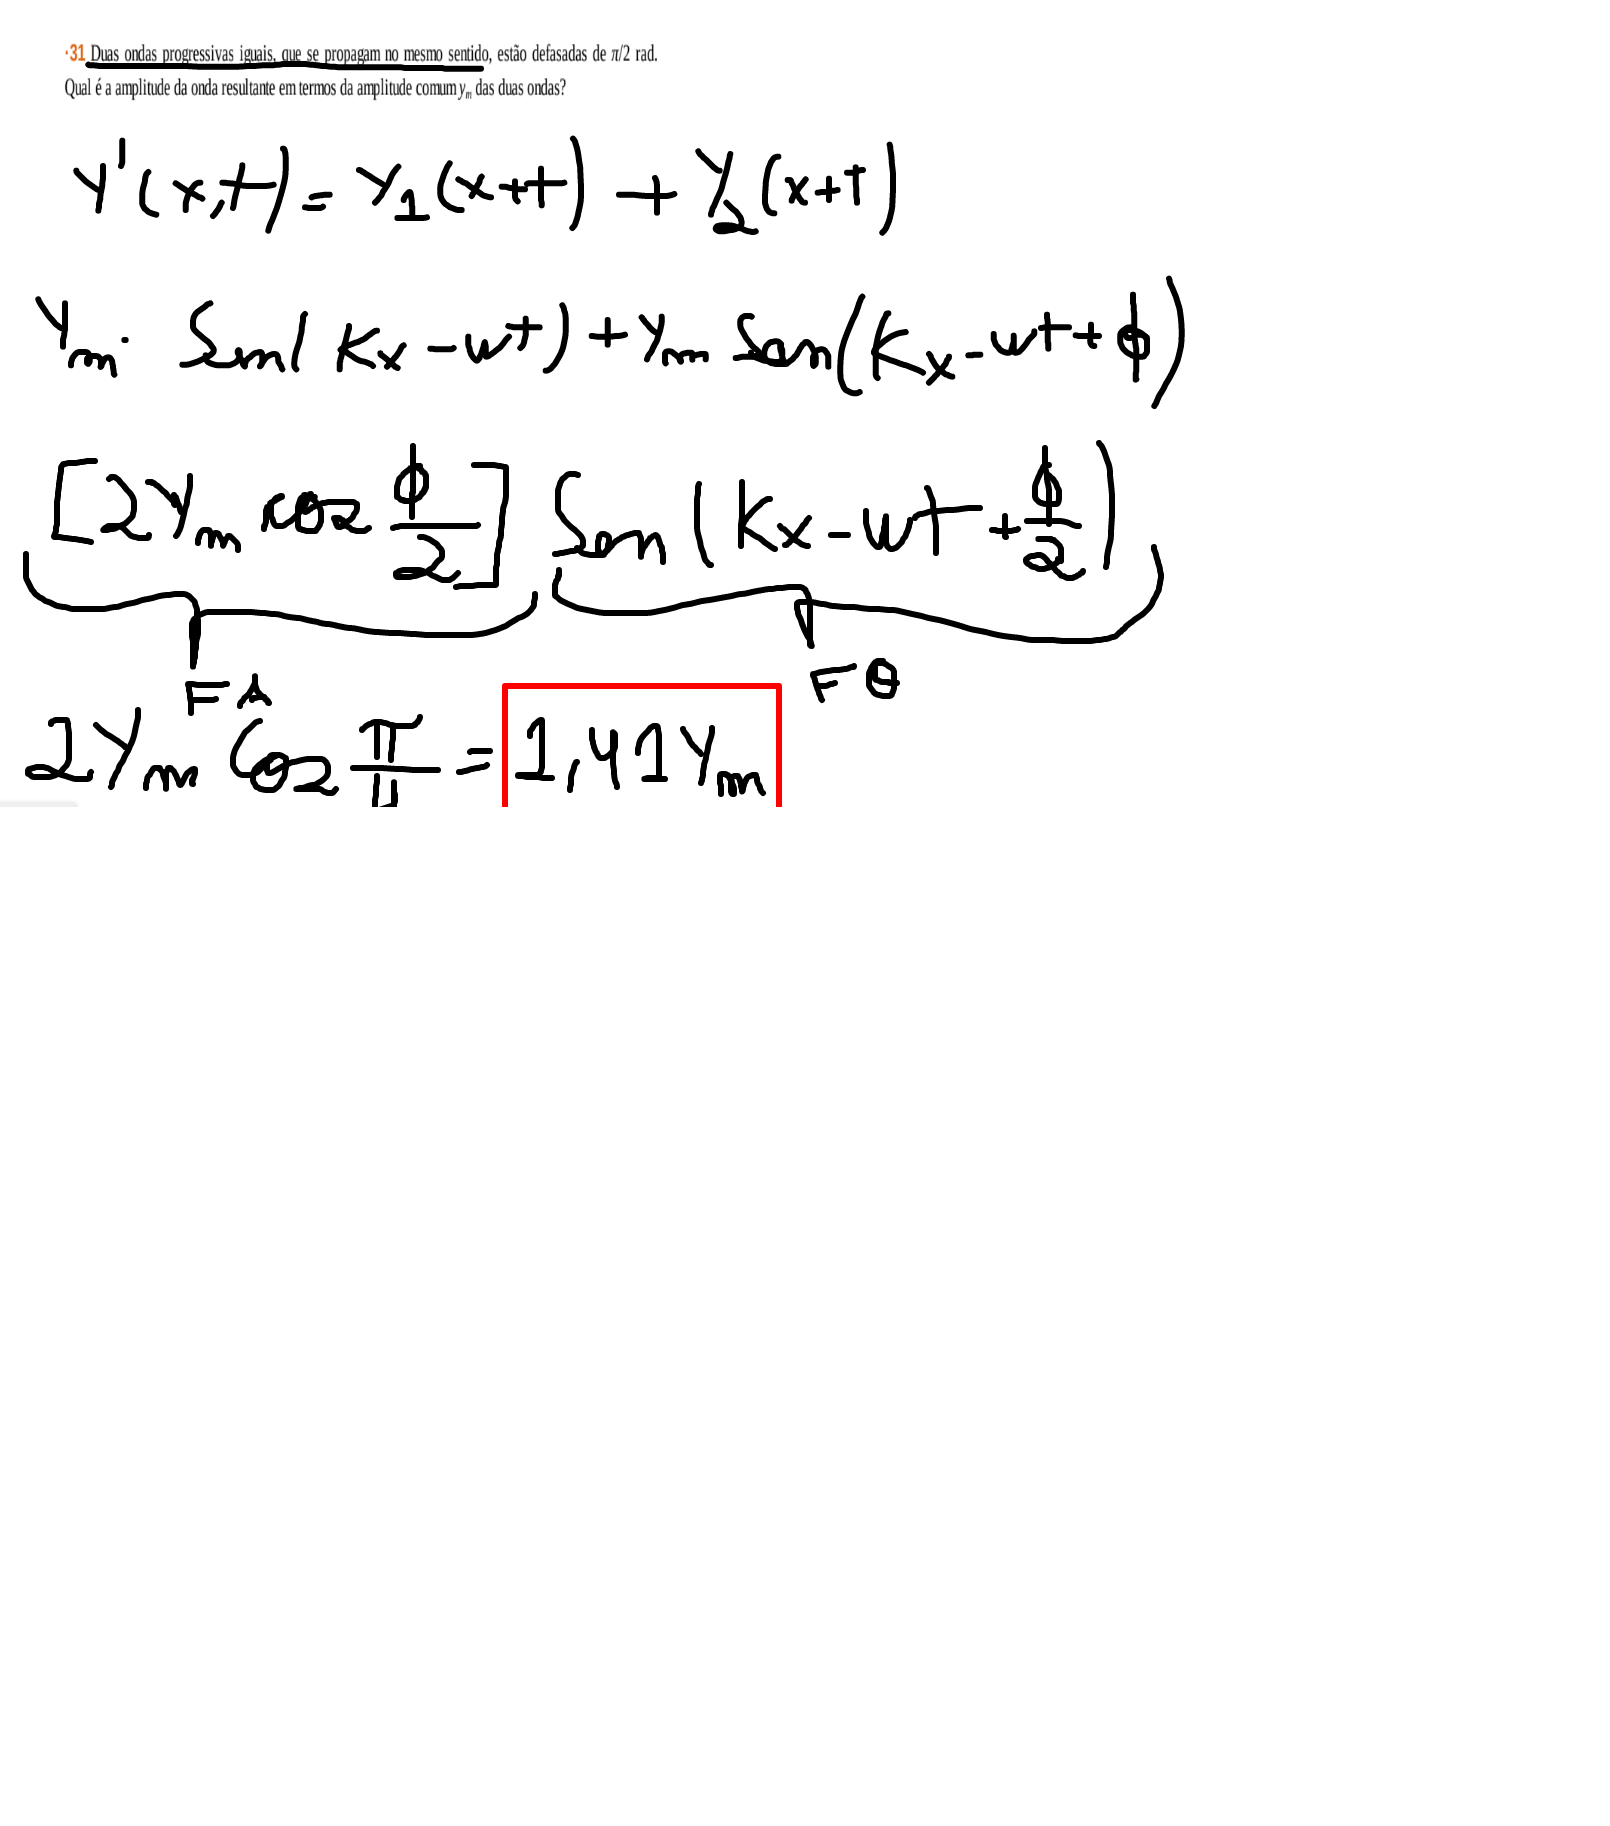 ·31 Duas ondas progressivas iguais, que se propagam no mesmo sentido, estão defasadas de π/2 rad.
Qual é a amplitude da onda resultante em termos da amplitude comum yₘ das duas ondas?
Y'(x,t) = Y₁(x+t) + Y₂(x+t)
Yₘ. Sen(Kx-wt) + Yₘ Sen(Kx-wt+ϕ)
[2Yₘ cos ϕ/2] Sen(Kx-wt+ϕ/2)
FA FO
2Yₘ Cos π/4 = 1,41Yₘ